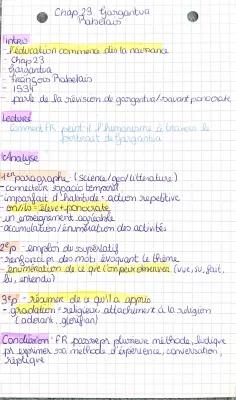 Chap 23 Gargantua
Rabelais
Intro
- l'éducation commence dès la naissance
- Chap 23
- Gargantua
- François Rabelais
- 1534
- parle de la révision de gargantua/savant ponocrate
Lecture
comment FR peint il l'humanisme à travers le
portrait de Gargantua
Analyse
1er paragraphe (science/geo/litterature)
- connecteur spacio temporel
- imparfait d'habitude = action repetitive
- on/ils = élève + ponocrate
- un enseignement agréable
- accumulation/énumération des activités
2e p - emploi du superlatif
- renforce par des mots évoquant le thème
- énumération de ce que l'on peut observer (vue, su, fait,
lu, entendu)
3e p - résumer de ce qu'il a appris
- gradation - religieux attachement à la religion
(adorant, glorifian)
Conclusion - FR passe par plusieurs méthode, ludique
pr exprimer sa méthode d'éxperience, conversation,
réplique